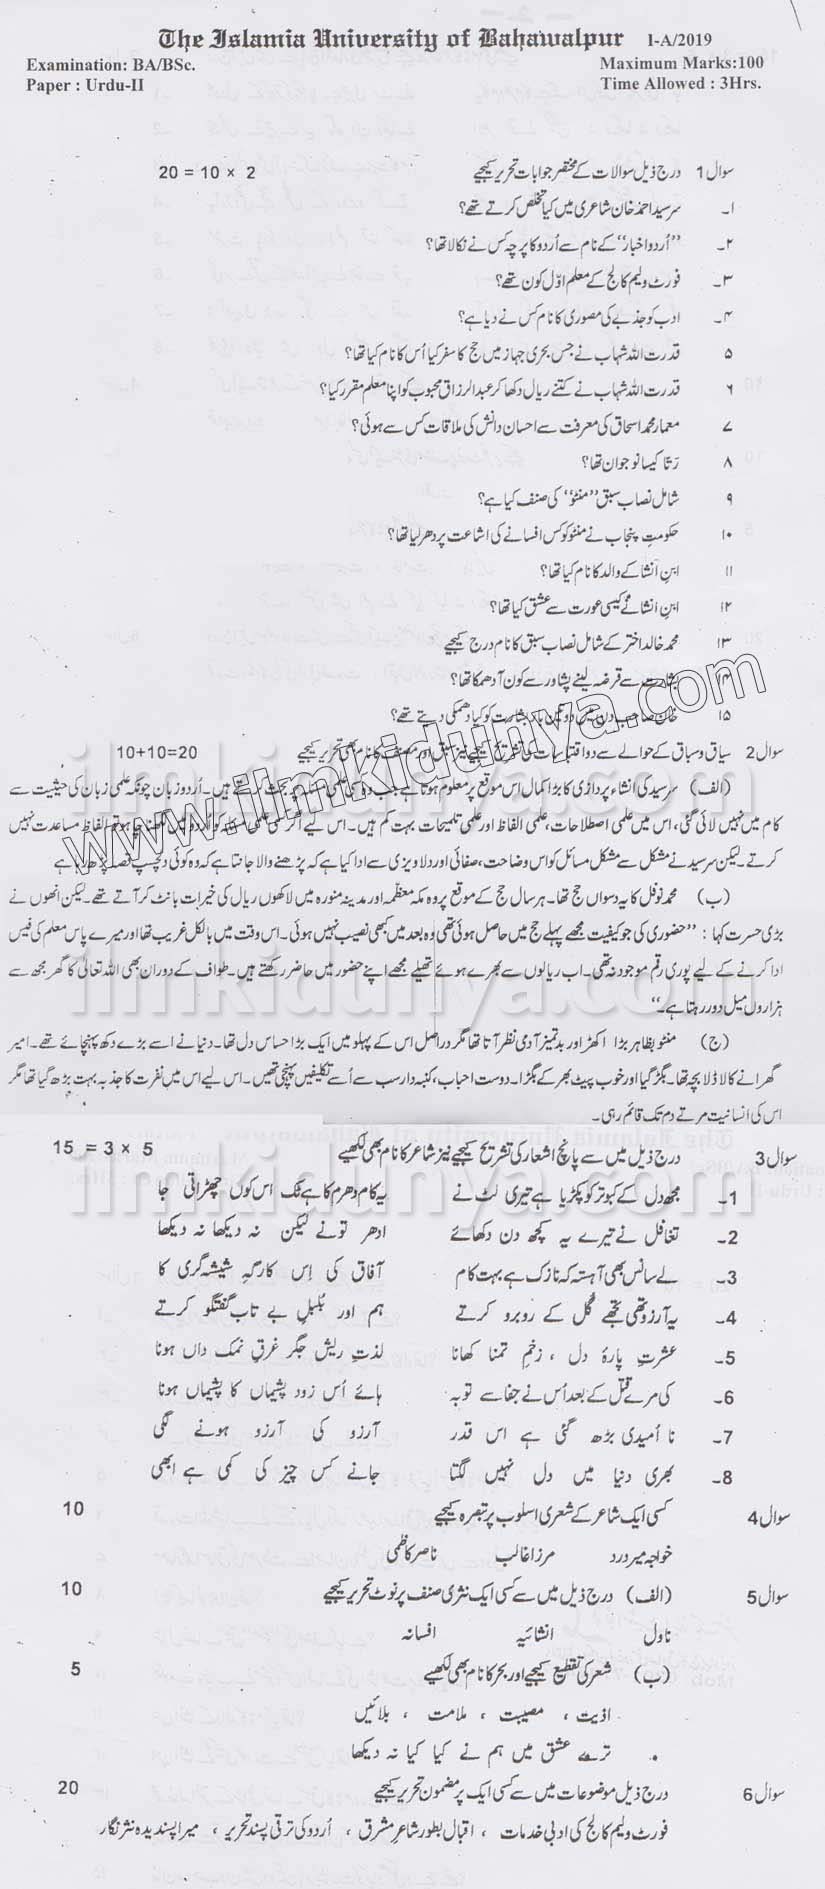 The Islamia University of Bahawalpur I-A/2019
Examination: BA/BSc. Maximum Marks:100
Paper : Urdu-II Time Allowed : 3Hrs.
سوال 1 درج ذیل سوالات کے مختصر جوابات تحریر کیجیے 2 × 10 = 20
۱۔ سرسید احمد خان شاعری میں کیا تخلص کرتے تھے؟
۲۔ "اُردو اخبار" کے نام سے اُردو کا پرچہ کس نے نکالا تھا؟
۳۔ فورٹ ولیم کالج کے معلم اوّل کون تھے؟
۴۔ ادب کو جذبے کی مصوری کا نام کس نے دیا ہے؟
۵ قدرت اللہ شہاب نے جس بحری جہاز میں حج کا سفر کیا اُس کا نام کیا تھا؟
۶ قدرت اللہ شہاب نے کتنے ریال دکھا کر عبدالرزاق محبوب کو اپنا معلم مقرر کیا؟
۷ معمار محمد اسحاق کی معرفت سے احسان دانش کی ملاقات کس سے ہوئی؟
۸ رَتا کیسا نوجوان تھا؟
۹ شامل نصاب سبق "منٹو" کی صنف کیا ہے؟
۱۰ حکومتِ پنجاب نے منٹو کو کس افسانے کی اشاعت پر دھر لیا تھا؟
۱۱ ابنِ انشا کے والد کا نام کیا تھا؟
۱۲ ابنِ انشا نے کیسی عورت سے عشق کیا تھا؟
۱۳ محمد خالد اختر کے شامل نصاب سبق کا نام درج کیجیے
۱۴ بشارت سے قرضہ لینے پشاور سے کون آ دھمکا تھا؟
۱۵ خان صاحب دن میں دو تین بار بشارت کو کیا دھمکی دیتے تھے؟
سوال 2 سیاق و سباق کے حوالے سے دو اقتباسات کی تشریح کیجیے نیز سبق اور مصنف کا نام بھی تحریر کیجیے 10+10=20
(الف) سرسید کی انشاء پردازی کا بڑا کمال اس موقع پر معلوم ہوتا ہے جب وہ کسی علمی مسئلہ پر بحث کرتے ہیں۔ اُردو زبان چونکہ علمی زبان کی حیثیت سے
کام میں نہیں لائی گئی، اس میں علمی اصطلاحات، علمی الفاظ اور علمی تلمیحات بہت کم ہیں۔ اس لیے اگر کسی علمی مسئلہ کو اردو میں لکھنا چاہو تو الفاظ مساعدت نہیں
کرتے۔ لیکن سرسید نے مشکل سے مشکل مسائل کو اس وضاحت، صفائی اور دلاویزی سے ادا کیا ہے کہ پڑھنے والا جانتا ہے کہ وہ کوئی دلچسپ قصہ پڑھ رہا ہے
(ب) محمد نوفل کا یہ دسواں حج تھا۔ ہر سال حج کے موقع پر وہ مکہ معظمہ اور مدینہ منورہ میں لاکھوں ریال کی خیرات بانٹ کر آتے تھے۔ لیکن انھوں نے
بڑی حسرت کہا : "حضوری کی جو کیفیت مجھے پہلے حج میں حاصل ہوئی تھی وہ بعد میں کبھی نصیب نہیں ہوئی۔ اس وقت میں بالکل غریب تھا اور میرے پاس معلم کی فیس
ادا کرنے کے لیے پوری رقم موجود نہ تھی۔ اب ریالوں سے بھرے ہوئے تھیلے مجھے اپنے حضور میں حاضر رکھتے ہیں۔ طواف کے دوران بھی اللہ تعالیٰ کا گھر مجھ سے
ہزاروں میل دور رہتا ہے۔"
(ج) منٹو بظاہر بڑا اکھڑ اور بدتمیز آدمی نظر آتا تھا مگر دراصل اس کے پہلو میں ایک بڑا حساس دل تھا۔ دنیا نے اسے بڑے دکھ پہنچائے تھے۔ امیر
گھرانے کا لاڈلا بچہ تھا۔ بگڑ گیا اور خوب پیٹ بھر کے بگڑا۔ دوست احباب، کنبہ دار سب سے اُسے تکلیفیں پہنچی تھیں۔ اس لیے اس میں نفرت کا جذبہ بہت بڑھ گیا تھا مگر
اس کی انسانیت مرتے دم تک قائم رہی۔
سوال 3 درج ذیل میں سے پانچ اشعار کی تشریح کیجیے نیز شاعر کا نام بھی لکھیے 5 × 3 = 15
1۔ مجھ دل کے کبوتر کو پکڑیا ہے تیری لٹ نے یہ کام دھرم کا ہے ٹک اس کوں چھڑاتی جا
2۔ تغافل نے تیرے یہ کچھ دن دکھائے ادھر تونے لیکن نہ دیکھا نہ دیکھا
3۔ لے سانس بھی آہستہ کہ نازک ہے بہت کام آفاق کی اِس کارگہِ شیشہ گری کا
4۔ یہ آرزو تھی تجھے گُل کے روبرو کرتے ہم اور بُلبلِ بے تاب گفتگو کرتے
5۔ عشرتِ پارۂ دل ، زخمِ تمنا کھانا لذتِ ریشِ جگر غرقِ نمک داں ہونا
6۔ کی مرے قتل کے بعد اُس نے جفا سے توبہ ہائے اُس زود پشیماں کا پشیماں ہونا
7۔ نا اُمیدی بڑھ گئی ہے اس قدر آرزو کی آرزو ہونے لگی
8۔ بھری دنیا میں دل نہیں لگتا جانے کس چیز کی کمی ہے ابھی
سوال 4 کسی ایک شاعر کے شعری اسلوب پر تبصرہ کیجیے 10
خواجہ میر درد مرزا غالب ناصر کاظمی
سوال 5 (الف) درج ذیل میں سے کسی ایک نثری صنف پر نوٹ تحریر کیجیے 10
ناول انشائیہ افسانہ
(ب) شعر کی تقطیع کیجیے اور بحر کا نام بھی لکھیے 5
اذیت ، مصیبت ، ملامت ، بلائیں
ترے عشق میں ہم نے کیا کیا نہ دیکھا
سوال 6 درج ذیل موضوعات میں سے کسی ایک پر مضمون تحریر کیجیے 20
فورٹ ولیم کالج کی ادبی خدمات ، اقبال بطور شاعرِ مشرق ، اُردو کی ترقی پسند تحریر ، میرا پسندیدہ نثر نگار
www.ilmkidunya.com
ilmkidunya.com
ilmkidunya.com
ilmkidunya.com